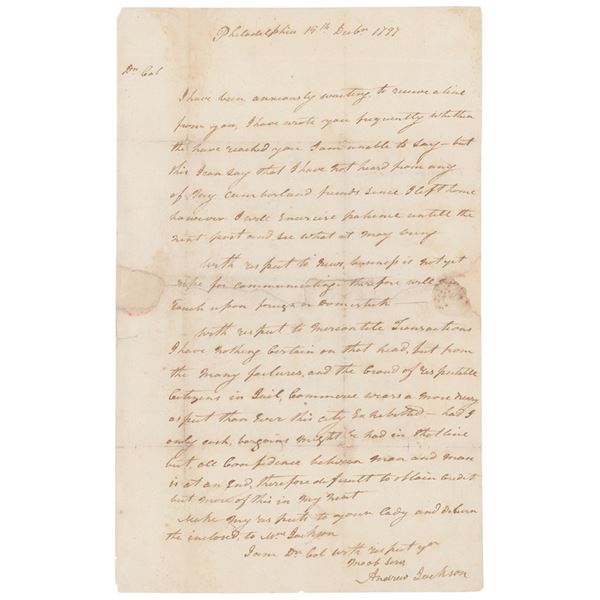 Philadelphia 18th Decbr 1797
Dr Col
I have been anxiously wanting to receive a line
from you, I have wrote you frequently whether
the have reached you I am unable to say – but
this I can say that I have not heard from any
of my Cumberland friends since I left home
however I will Exercise patience untill the
next post and see what it may bring
With respect to News, business is not yet
ripe for communicating, therefore will
touch upon foreign or Domestick –
With respect to Mercantile Transactions
I have nothing Certain on that head, but from
the many failures, and the Croud of respectable
Citizens in Jail, Commerce wears a more dreary
aspect than Ever this city Exhibited – had I
only cash, bargains might be had in that line
but, all Confidence between man and man
is at an End, therefore difficult to obtain Credit
but more of this in my next
Make my respects to your Lady and deliver
the inclosed, to Mrs Jackson
I am Dr Col with respect yr
most Serv
Andrew Jackson